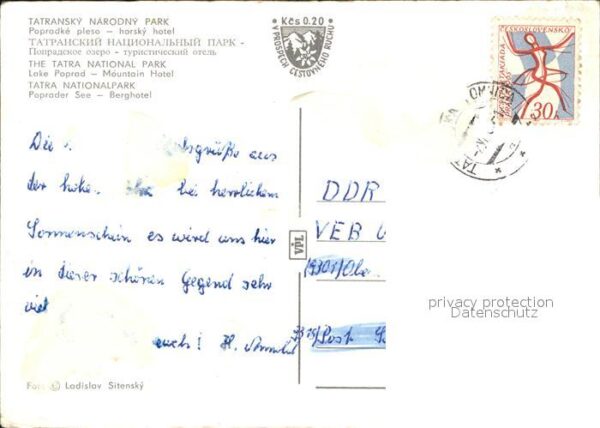 TATRANSKÝ NÁRODNÝ PARK
Popradké pleso — horský hotel
ТАТРАНСКИЙ НАЦИОНАЛЬНЫЙ ПАРК -
Попрадское озеро - туристический отель
THE TATRA NATIONAL PARK
Lake Poprad — Mountain Hotel
TATRA NATIONALPARK
Poprader See — Berghotel
Kčs 0.20
V PROSPECH CESTOVNÉHO RUCHU
ČESKOSLOVENSKO
30h
Die aus
der hohen bei herrlichem
Sonnenschein es wird uns hier
in dieser schönen Gegend sehr
viel
euch! H.
Foto © Ladislav Sitenský
VDL
DDR
VEB
Post
privacy protection
Datenschutz